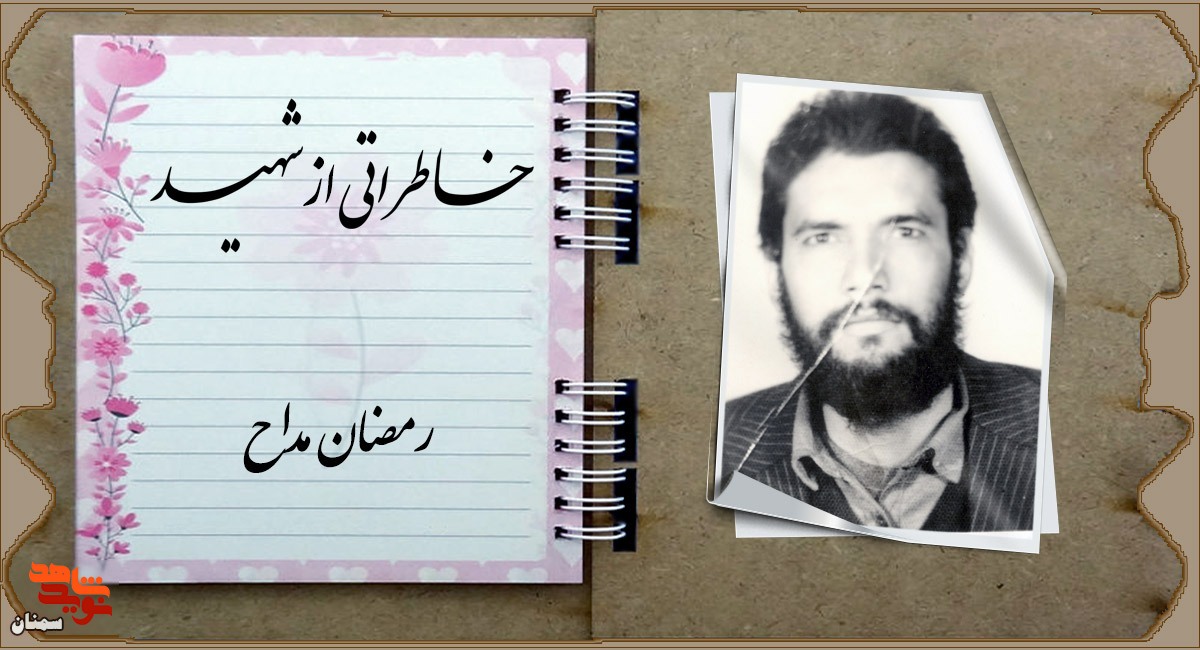 خاطراتی از شهید
رمضان مداح
نوید شاهد
سمنان